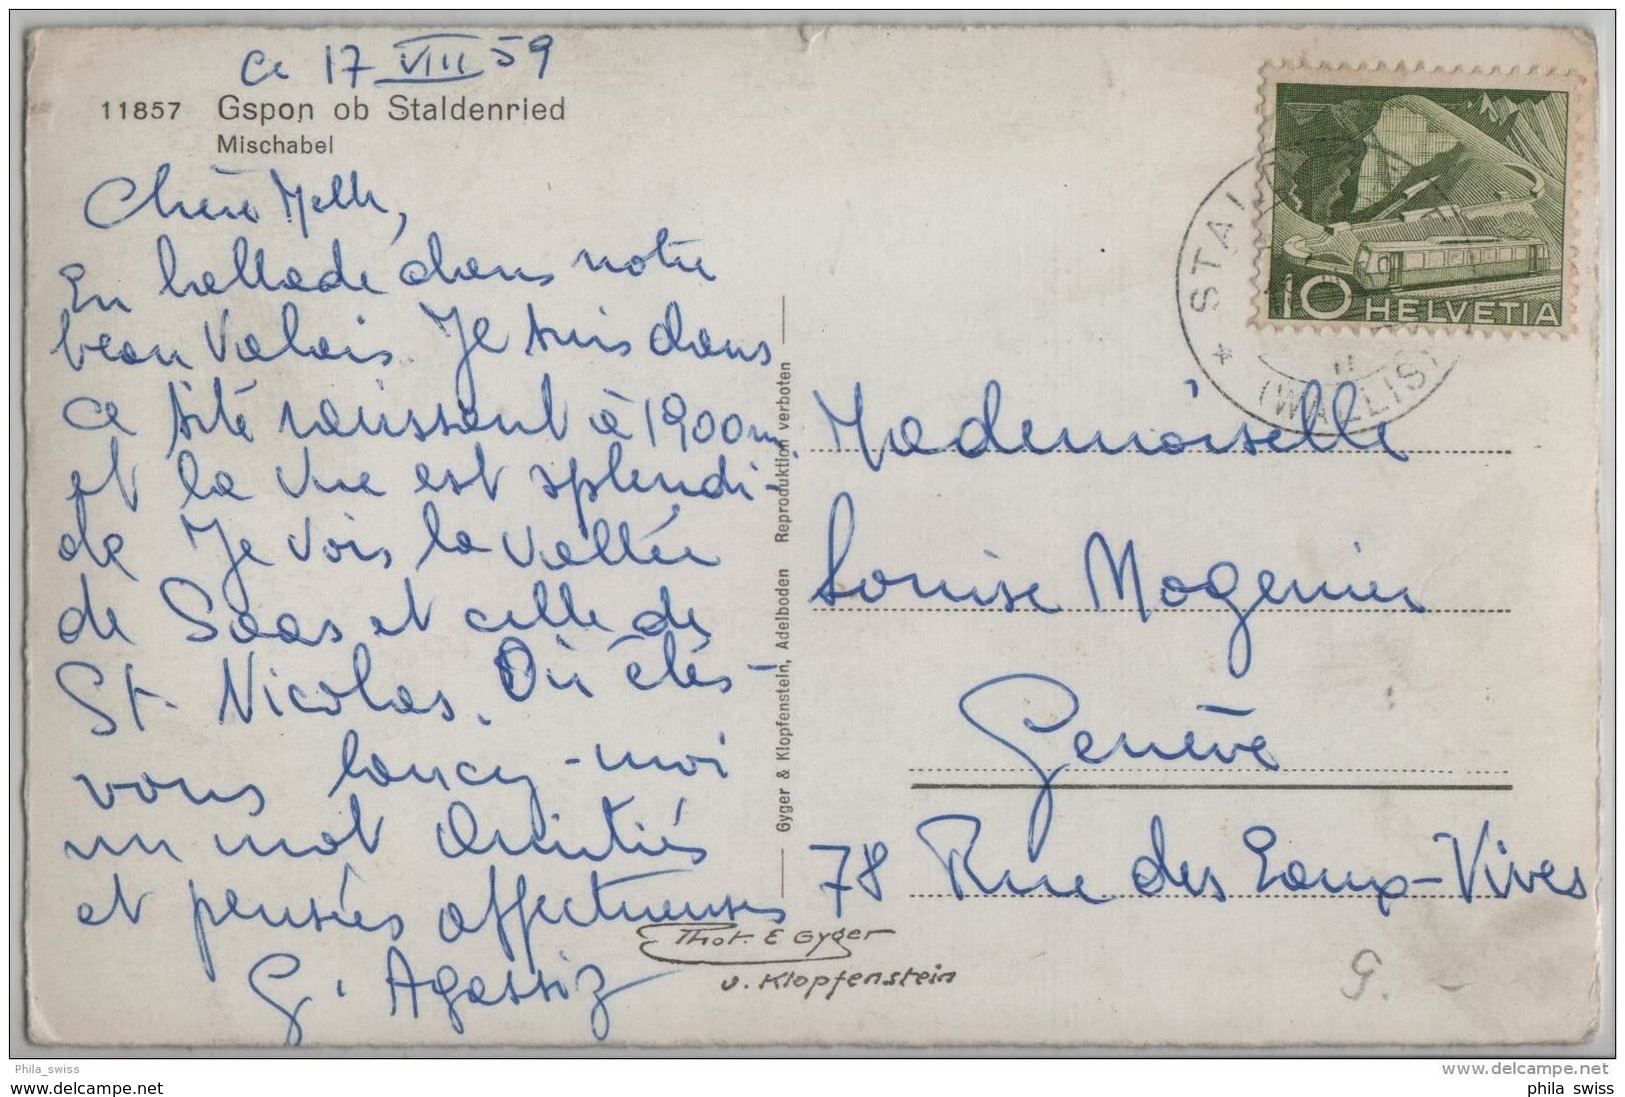 Ce 17 VIII 59
11857 Gspon ob Staldenried
Mischabel
Chère Melle,
En ballade dans notre
beau Valais. Je suis dans
ce site ravissant à 1900 m
et la vue est splendi-
de Je vois la vallée
de Saas et celle de
St. Nicolas. Où êtes-
vous lancez-moi
un mot Amitiés
et pensées affectueuses
G. Agassiz
Gyger & Klopfenstein, Adelboden Reproduktion verboten
Phot. E Gyger
u. Klopfenstein
10 HELVETIA
* STAL
(WALLIS)
Mademoiselle
Louise Mogenier
Genève
78 Rue des Eaux-Vives
g.
Phila_swiss
www.delcampe.net
www.delcampe.com
phila swiss